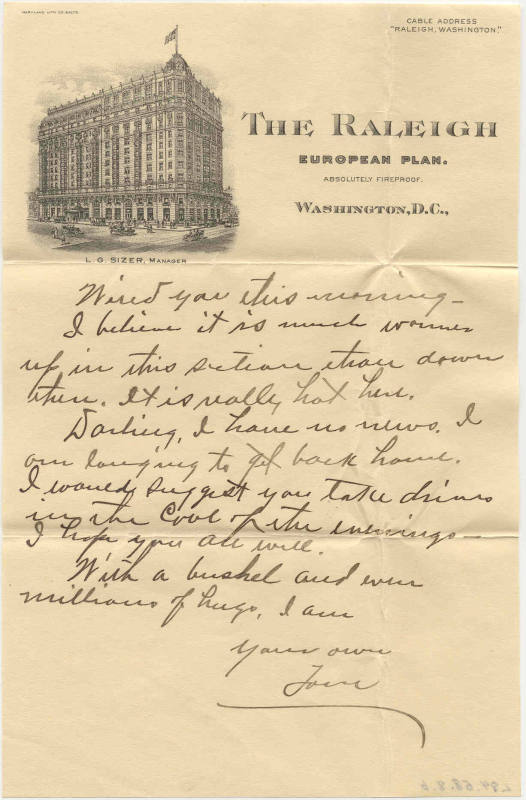 MARYLAND LITH. CO. BALTO.
CABLE ADDRESS
"RALEIGH, WASHINGTON."
THE RALEIGH
EUROPEAN PLAN.
ABSOLUTELY FIREPROOF.
WASHINGTON, D.C.,
L. G. SIZER, MANAGER
Wired you this morning—
I believe it is much warmer
up in this section than down
there. It is really hot here.
Darling, I have no news. I
am longing to get back home.
I would suggest you take drives
in the cool of the evenings—
I hope you are well.
With a bushel and
millions of hugs, I am
Your own
Tom
L94.68.8.6